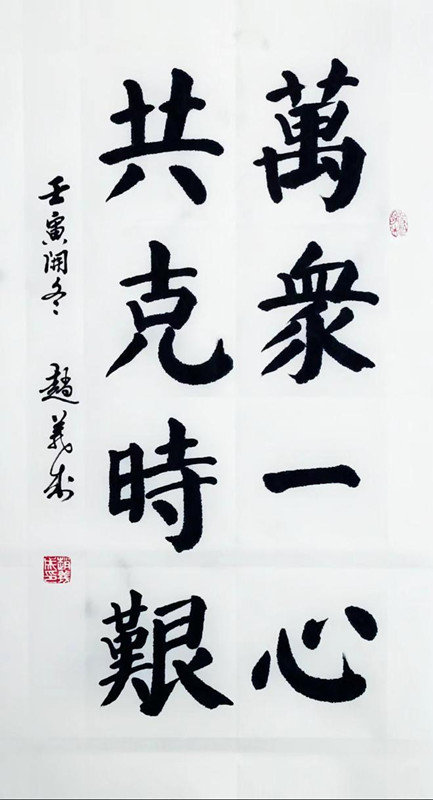 萬衆一心
共克時艱
壬寅開冬 趙義